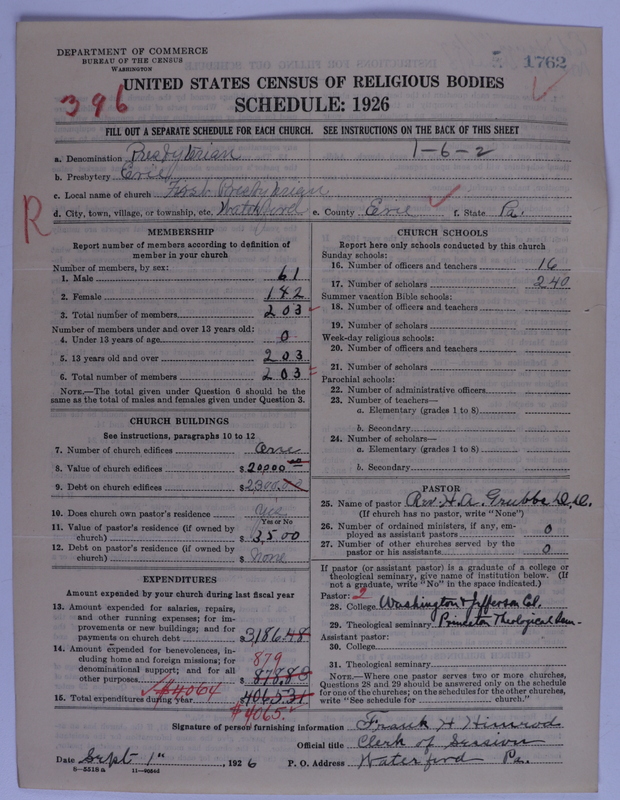 DEPARTMENT OF COMMERCE
BUREAU OF THE CENSUS
WASHINGTON
1762
UNITED STATES CENSUS OF RELIGIOUS BODIES
396
SCHEDULE: 1926
FILL OUT A SEPARATE SCHEDULE FOR EACH CHURCH. SEE INSTRUCTIONS ON THE BACK OF THIS SHEET
a. Denomination Presbyterian 1-6-2
b. Presbytery Erie
c. Local name of church First Presbyterian
R
d. City, town, village, or township, etc. Waterford e. County Erie f. State Pa.
MEMBERSHIP
Report number of members according to definition of
member in your church
Number of members, by sex:
1. Male 61
2. Female 142
3. Total number of members 203
Number of members under and over 13 years old:
4. Under 13 years of age 0
5. 13 years old and over 203
6. Total number of members 203
NOTE.—The total given under Question 6 should be
the same as the total of males and females given under Question 3.
CHURCH BUILDINGS
See instructions, paragraphs 10 to 12
7. Number of church edifices one
8. Value of church edifices $20000 00
9. Debt on church edifices $2300.00
10. Does church own pastor's residence yes
Yes or No
11. Value of pastor's residence (if owned by
church) $3,500
12. Debt on pastor's residence (if owned by
church) $ none
EXPENDITURES
Amount expended by your church during last fiscal year
13. Amount expended for salaries, repairs,
and other running expenses; for im-
provements or new buildings; and for
payments on church debt 3,186.48
14. Amount expended for benevolences, in-
cluding home and foreign missions; for
denominational support; and for all
other purposes $ 878.83
879
$4064
15. Total expenditures during year 4065.31
$4065.
CHURCH SCHOOLS
Report here only schools conducted by this church
Sunday schools:
16. Number of officers and teachers 16
17. Number of scholars 240
Summer vacation Bible schools:
18. Number of officers and teachers
19. Number of scholars
Week-day religious schools:
20. Number of officers and teachers
21. Number of scholars
Parochial schools:
22. Number of administrative officers
23. Number of teachers—
a. Elementary (grades 1 to 8)
b. Secondary
24. Number of scholars—
a. Elementary (grades 1 to 8)
b. Secondary
PASTOR
25. Name of pastor Rev. H. A. Grubbs D.D.
(If church has no pastor, write "None")
26. Number of ordained ministers, if any, em-
ployed as assistant pastors 0
27. Number of other churches served by the
pastor or his assistants 0
If pastor (or assistant pastor) is a graduate of a college or
theological seminary, give name of institution below. (If
not a graduate, write "No" in the space indicated.)
Pastor: 2
28. College Washington & Jefferson Col.
29. Theological seminary Princeton Theological Sem-
Assistant pastor:
30. College
31. Theological seminary
NOTE.—Where one pastor serves two or more churches,
Questions 28 and 29 should be answered only on the schedule
for one of the churches; on the schedules for the other churches,
write "See schedule for church."
Signature of person furnishing information Frank H Himrod
Official title Clerk of Session
Date Sept 1st, 1926 P. O. Address Waterford Pa.
8—5518 a